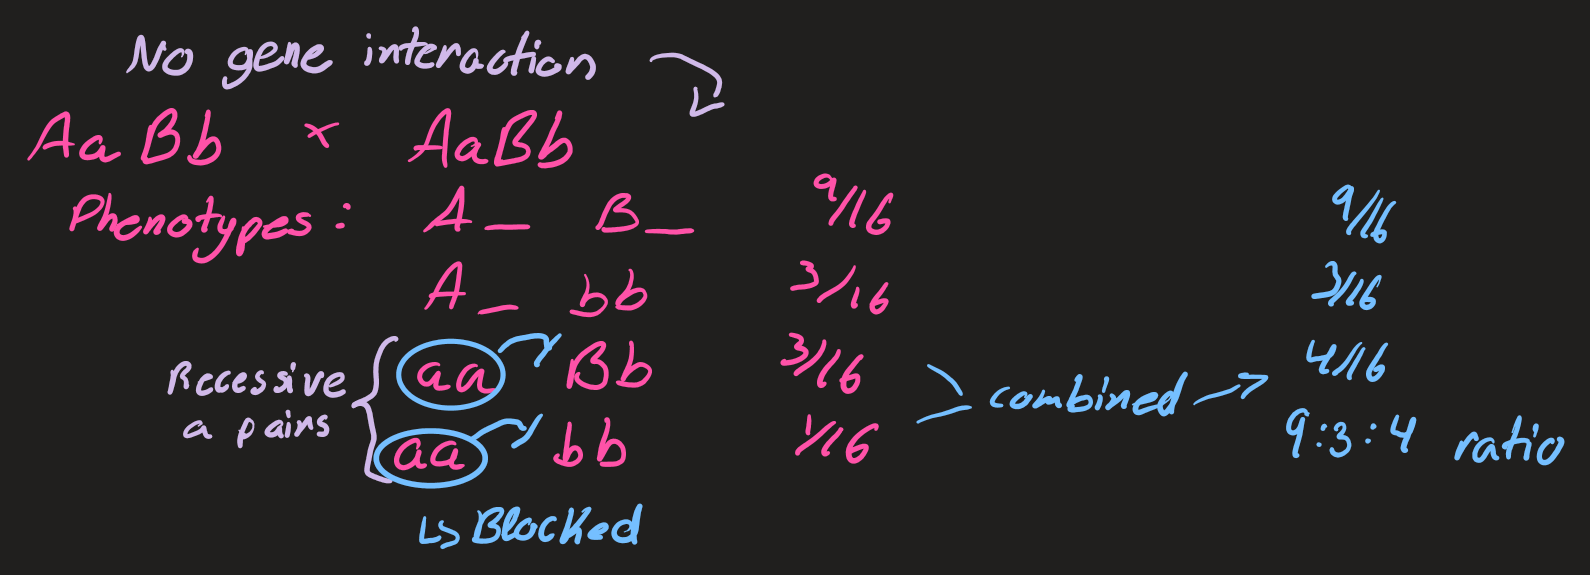 No gene interaction
AaBb × AaBb
Phenotypes: A_ B_ 9/16 9/16
A_ bb 3/16 3/16
Recessive a pairs
aa Bb 3/16 4/16
combined
aa bb 1/16 9:3:4 ratio
↳ Blocked